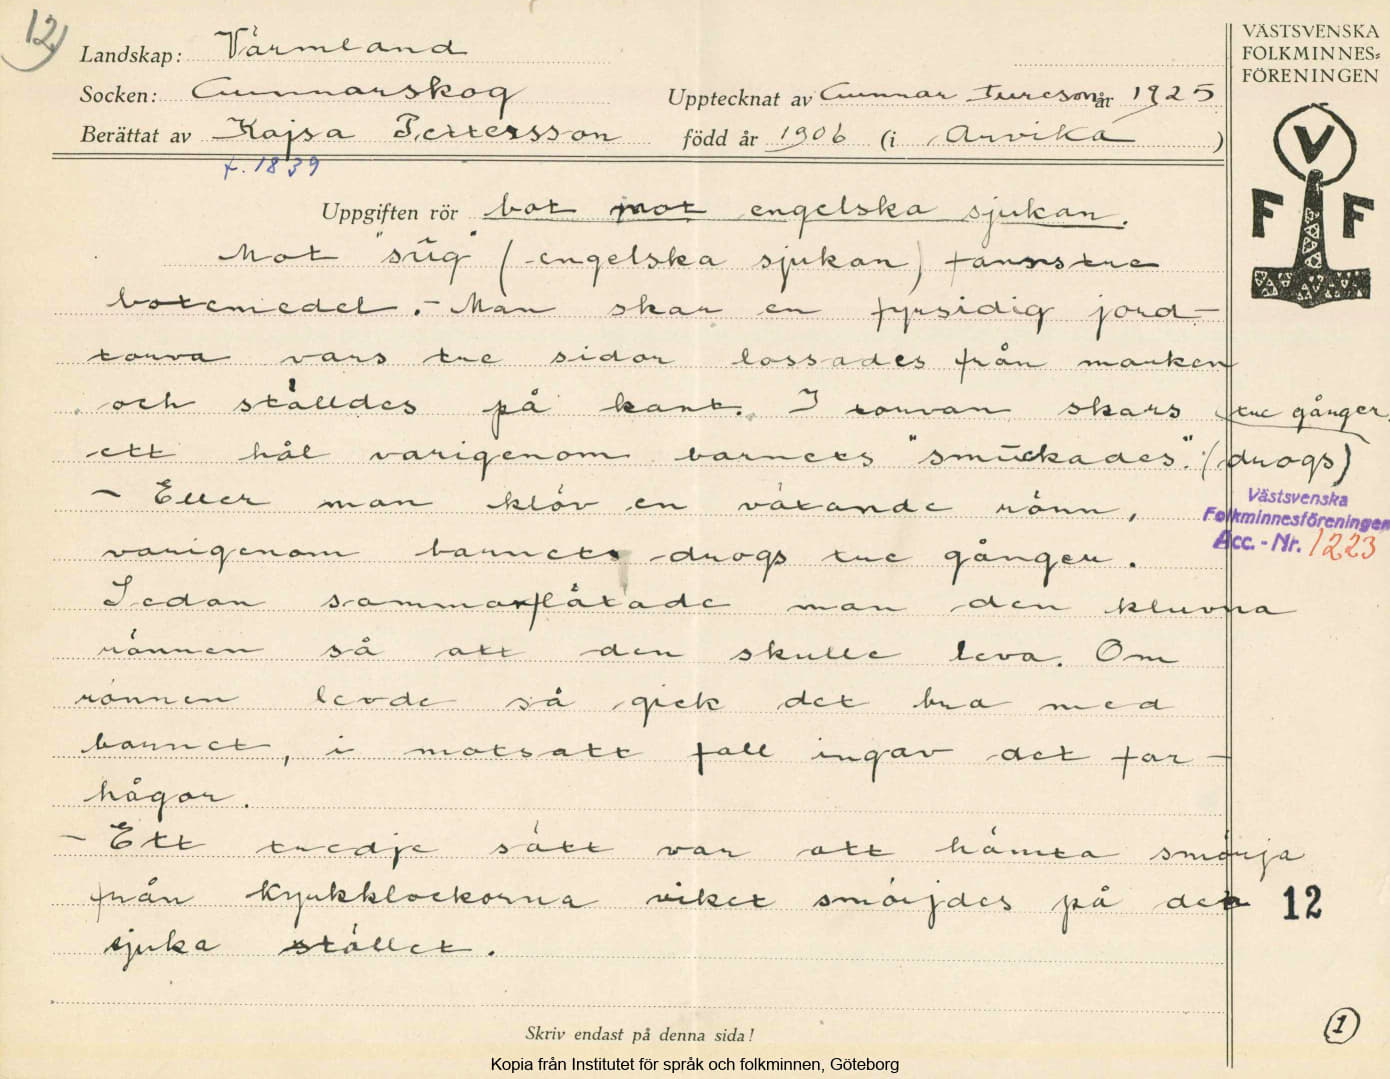 12)
Landskap: Värmland
Socken: Gunnarskog
Upptecknat av Gunnar Turesson år 1925
Berättat av Kajsa Pettersson född år 1906 (i Arvika)
f. 1839
VÄSTSVENSKA
FOLKMINNES-
FÖRENINGEN
V
F F
Uppgiften rör bot mot engelska sjukan.
Mot "sūg" (engelska sjukan) fanns tre
botemedel. - Man skar en fyrsidig jord-
torva vars tre sidor lossades från marken
och ställdes på kant. I torvan skars tre gånger
ett hål varigenom barnets "smūckades". (drogs)
- Eller man klöv en växande rönn,
varigenom barnet drogs tre gånger.
Sedan sammanflätade man den kluvna
rönnen så att den skulle leva. Om
rönnen levde så gick det bra med
barnet, i motsatt fall ingav det far-
hågor.
- Ett tredje sätt var att hämta smörja
från kyrkklockorna vilket smörjdes på det
sjuka stället.
Västsvenska
Folkminnesföreningen
Acc. - Nr. 1223
12
1
Skriv endast på denna sida!
Kopia från Institutet för språk och folkminnen, Göteborg